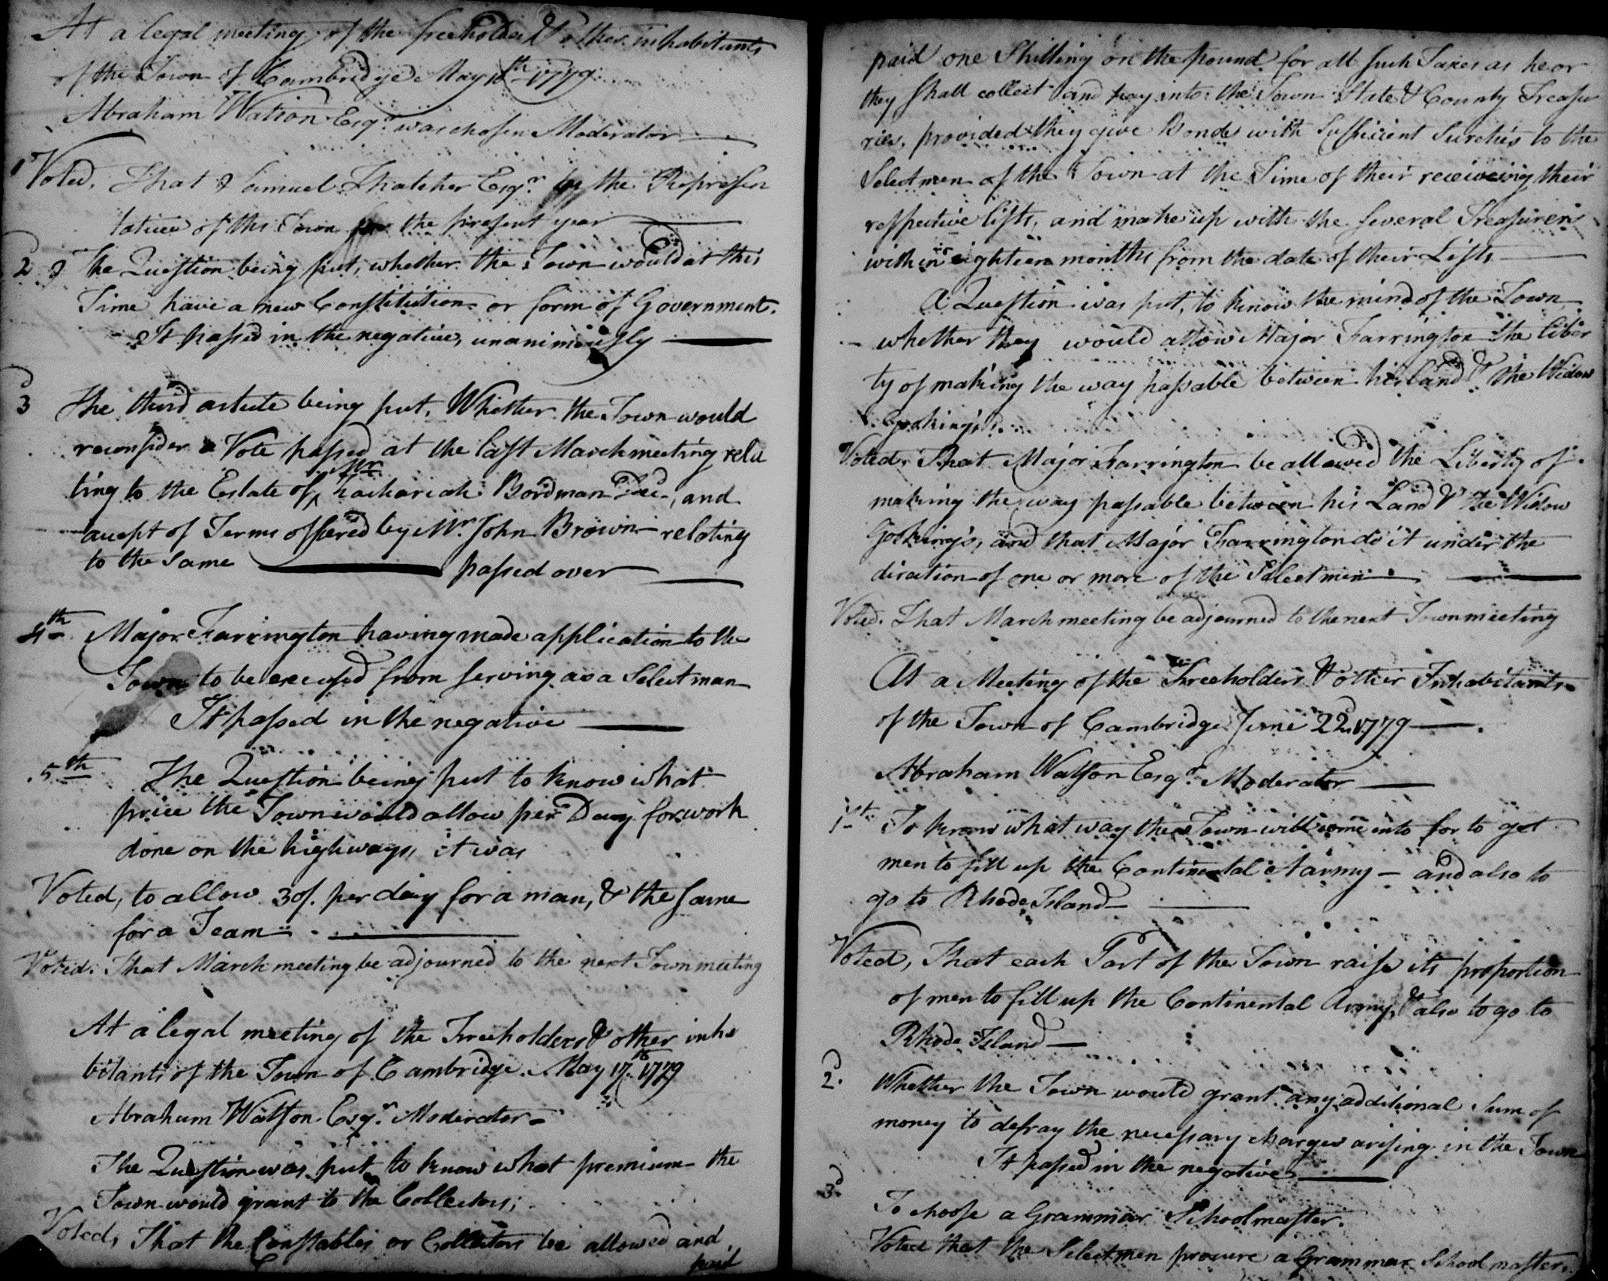 At a legal meeting of the freeholders & other inhabitants
of the Town of Cambridge May 10th 1779
Abraham Watson Esqr. was chosen Moderator
1 Voted, That Samuel Thatcher Esqr. be the Represen
tative of this Town for the present year
2d The Question being put, whether the Town would at this
Time have a new Constitution or form of Government.
It passed in the negative, unanimously
3d The third article being put, Whether the Town would
reconsider a Vote passed at the last March meeting rela
ting to the Estate of Mr Zachariah Bordman Decd, and
accept of Terms offered by Mr. John Brown relating
to the same passed over
4th Major Farrington having made application to the
Town to be excused from serving as a Selectman
It passed in the negative
5th The Question being put to know what
price the Town would allow per Day for work
done on the highways, it was
Voted, to allow 30/. per day for a man, & the same
for a Team
Voted: That March meeting be adjourned to the next Town meeting
At a legal meeting of the Freeholders & other inha
bitants of the Town of Cambridge. May 17th 1779
Abraham Watson Esqr. Moderator
The Question was put to know what premium the
Town would grant to the Collectors;
Voted, That the Constables or Collectors be allowed and
paid
paid one Shilling on the pound for all such Taxes as he or
they shall collect and pay into the Town State & County Treasu
ries, provided they give Bonds with Sufficient Sureties to the
Selectmen of the Town at the Time of their receiving their
respective lists, and make up with the several Treasurers
within eighteen months from the date of their Lists
A Question was put, to know the mind of the Town
whether they would allow Major Farrington the liber
ty of making the way passable between his land & the Widow
Gookings.
Voted, That Major Farrington be allowed the Liberty of
making the way passable between his Land & the Widow
Gookings, and that Major Farrington do it under the
direction of one or more of the Selectmen
Voted. That March meeting be adjourned to the next Town meeting
At a Meeting of the Freeholders & other Inhabitants
of the Town of Cambridge June 22d 1779
Abraham Watson Esqr. Moderator
1st To know what way the Town will come into for to get
men to fill up the Continental Aarmy – and also to
go to Rhode Island
Voted, That each Part of the Town raise its proportion
of men to fill up the Continental Army, & also to go to
Rhode Island
2d. Whether the Town would grant any additional Sum of
money to defray the necessary charges arising in the Town
It passed in the negative
3d To choose a Grammar Schoolmaster.
Voted that the Selectmen procure a Grammar School master.